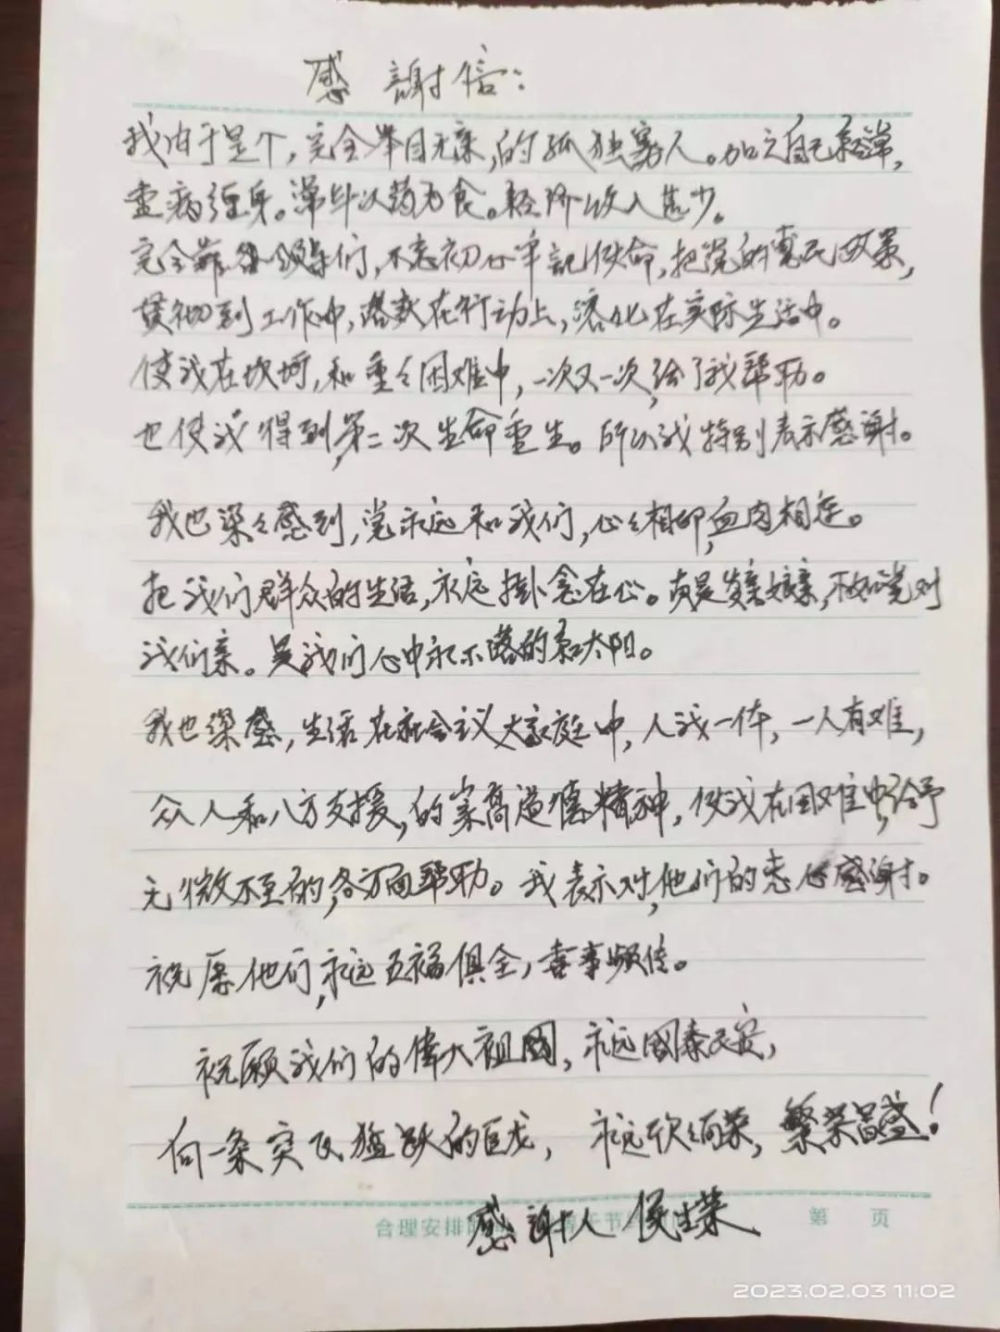 感謝信：
我由于是个，完全举目无亲，的孤独寡人。加之自己常，
重病缠身。常年以药为食。经济收入甚少。
完全靠领导们，不忘初心牢記使命，把党的惠民政策，
贯彻到工作中，落实在行动上，溶化在实际生活中。
使我在坎坷，和重々困难中，一次又一次，给了我帮助。
也使我得到，第二次生命重生。所以我特别表示感謝。
我也深々感到，党永远和我们，心々相印，血肉相连。
把我们群众的生活，永远掛念在心。真是爹亲娘亲，不如党对
我们亲。是我们心中永不落的红太阳。
我也深感，生活在社会主议大家庭中，人我一体，一人有难，
众人和八方支援，的崇高道德精神，使我在困难中，给予
无微不至的，各方面帮助。我表示对，他们的衷心感謝。
祝愿他们，永远五福俱全，喜事频传。
祝願我们的偉大祖國，永远國泰民安，
向一条突飞猛跃的巨龙，永远欣欣向荣，繁荣昌盛！
感謝人 侯生荣
合理安排 第 页
2023.02.03 11:02